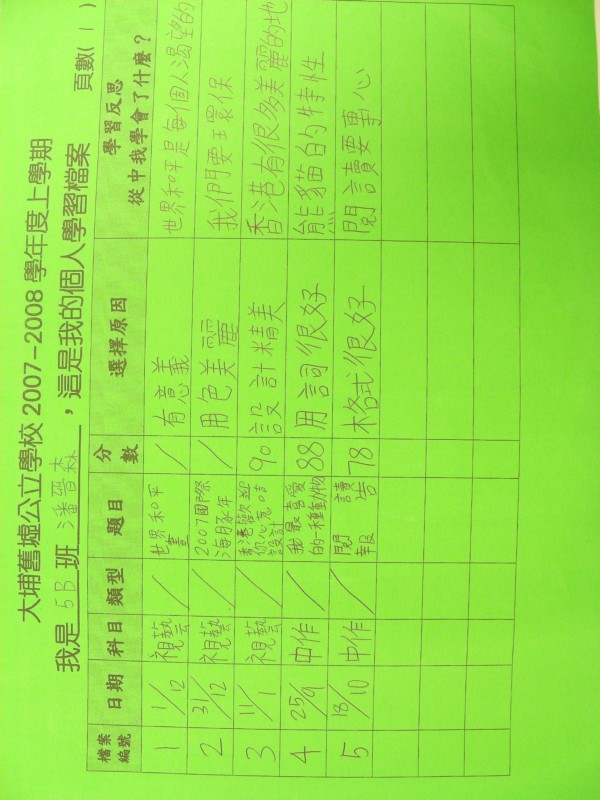 大埔舊墟公立學校 2007-2008 學年度上學期
我是 5B 班 潘晉森 ，這是我的個人學習檔案 頁數( 1 )
檔案編號 日期 科目 類型 題目 分數 選擇原因 學習反思 從中我學會了什麼？
1 1/12 視藝 / 世界和平畫 / 有意義 世界和平是每個人渴望的
2 31/12 視藝 / 2007國際海豚年 / 用色美麗 我們要環保
3 11/1 視藝 / 香港歡迎你心意咭設計 90 設計精美 香港有很多美麗的地
4 25/9 中作 / 我最喜愛的一種動物 88 用詞很好 熊貓的特性
5 18/10 中作 / 閱讀報告 78 格式很好 閱讀要專心